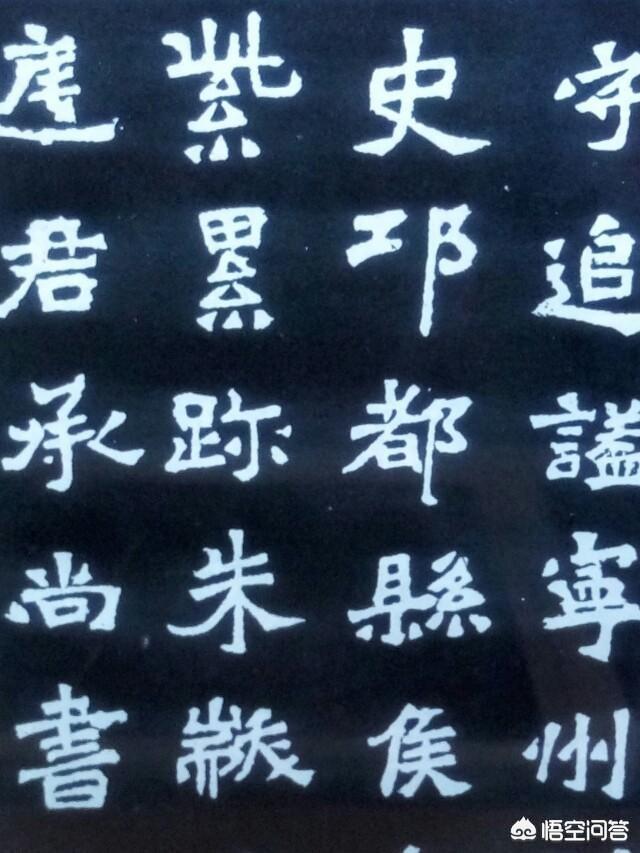 守追謚寧州
史邛都縣侯
紫累跡朱黻
庭君承尚書
悟空问答